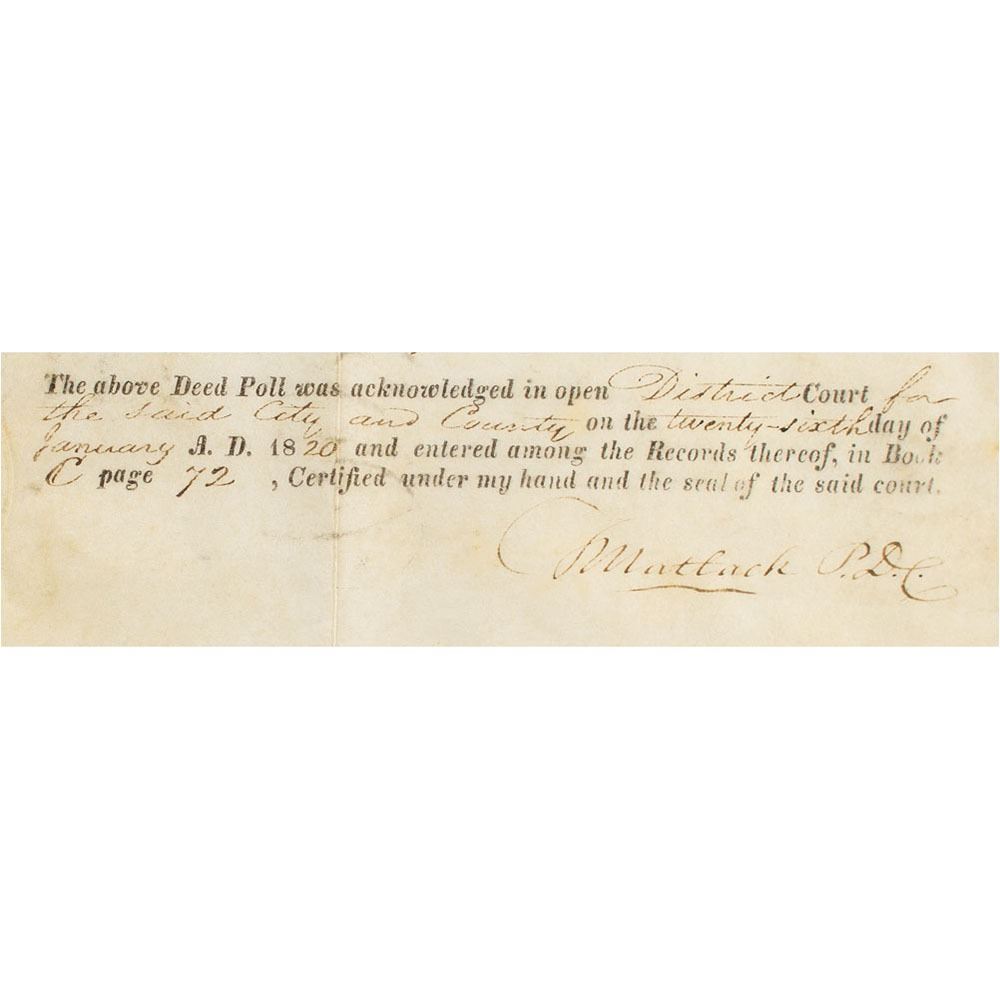 The above Deed Poll was acknowledged in open District Court for
the said City and County on the twenty-sixth day of
January A. D. 1820 and entered among the Records thereof, in Book
C page 72 , Certified under my hand and the seal of the said court.
TMatlack P.D.C.